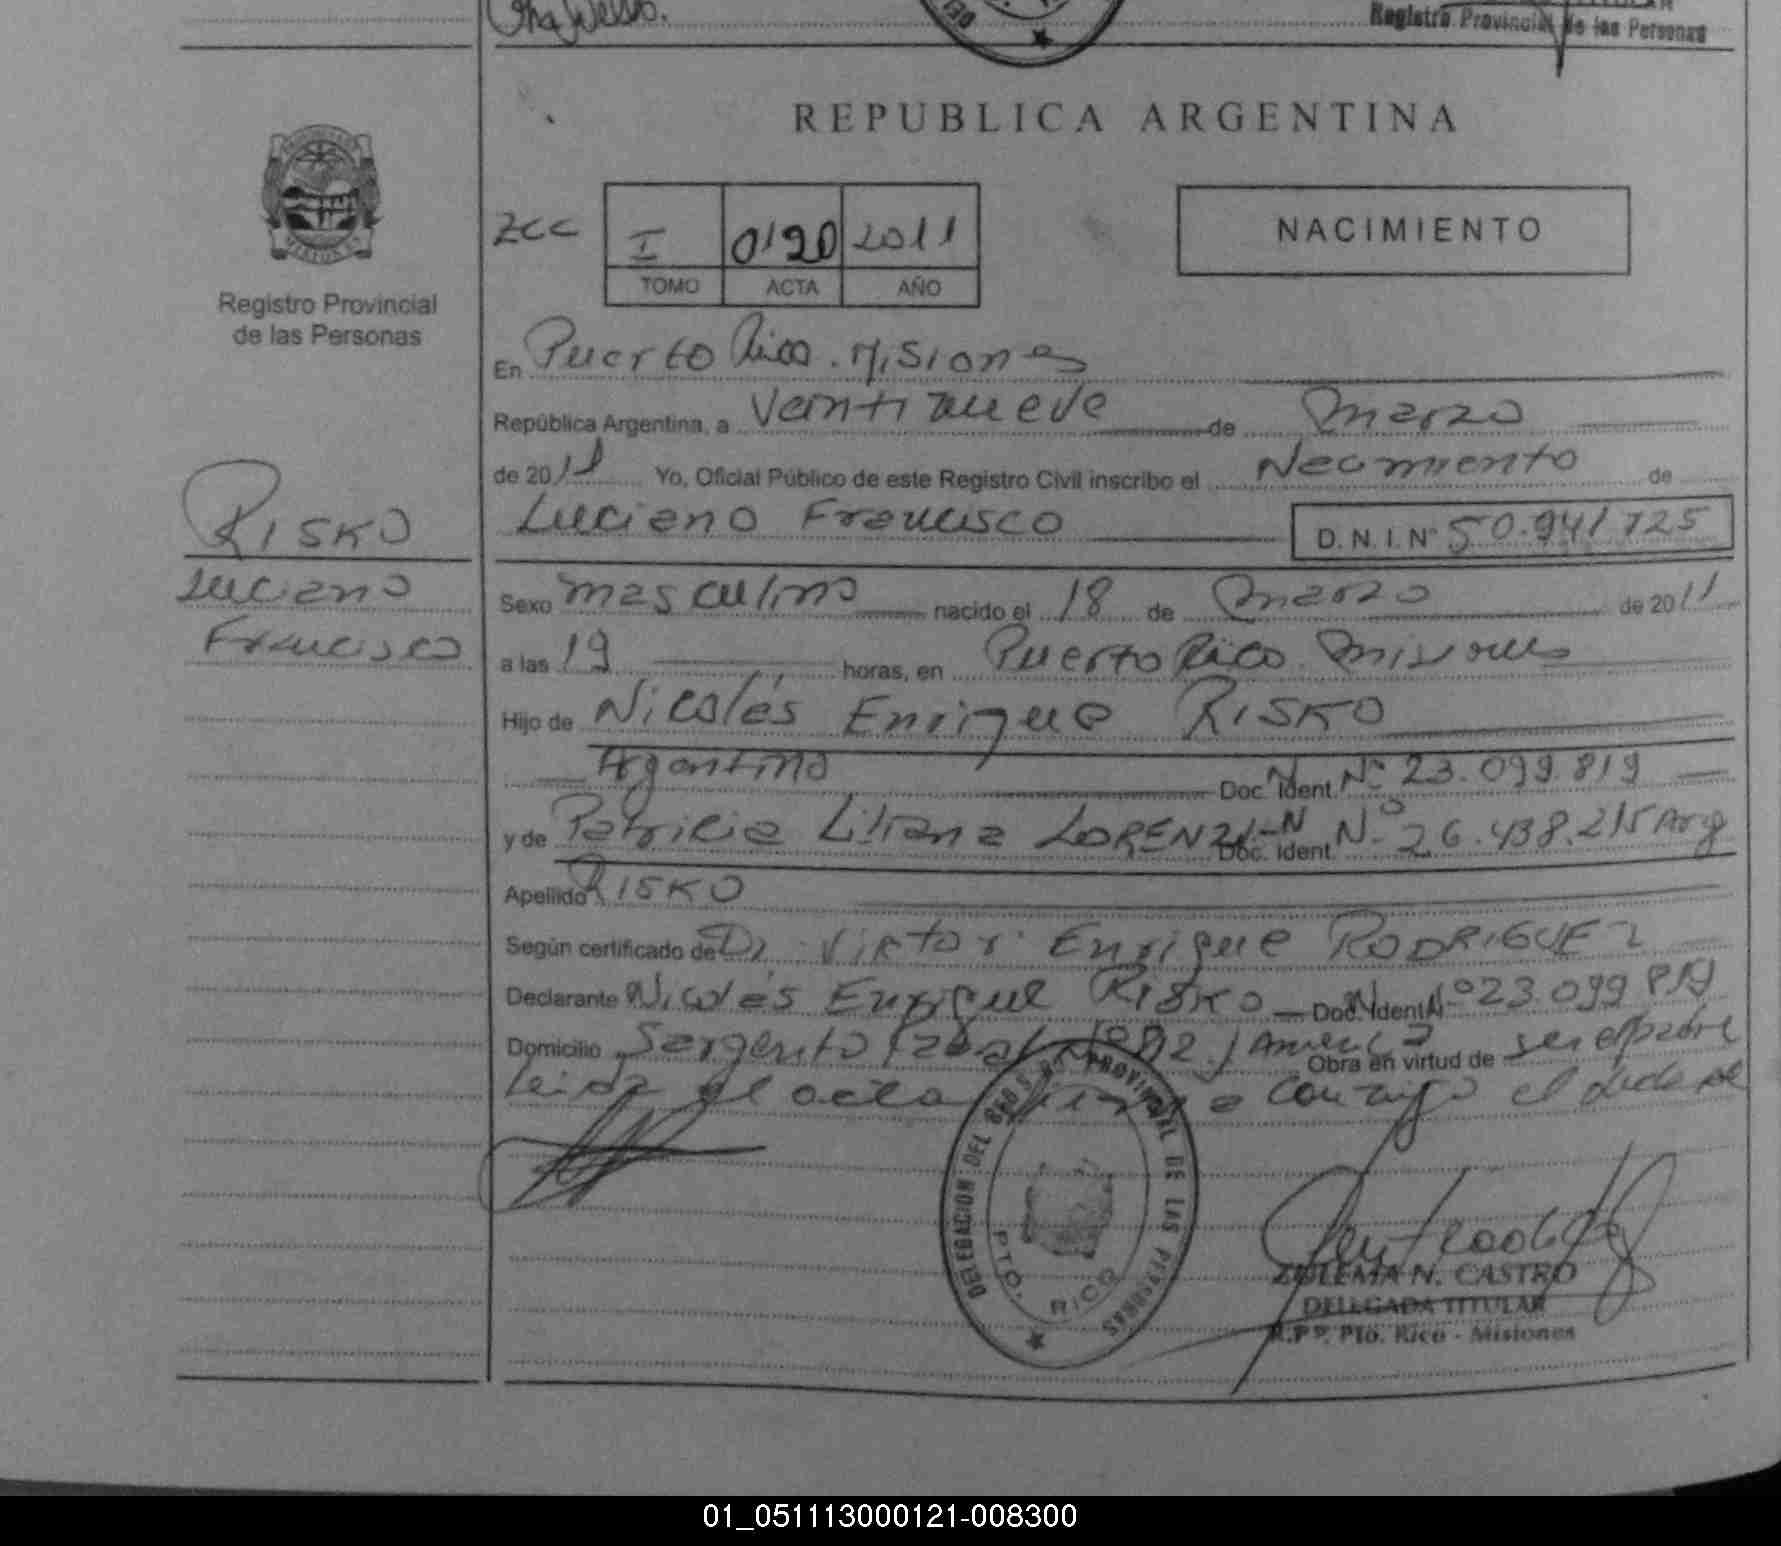 Registro Provincial de las Personas
REPUBLICA ARGENTINA
Registro Provincial
de las Personas
I 0120 2011
TOMO ACTA AÑO
NACIMIENTO
En Puerto Rico. Misiones
República Argentina, a Veintinueve de Marzo
de 2011 Yo, Oficial Público de este Registro Civil inscribo el Nacimiento de
Luciano Francisco D. N. I. Nº 50.941725
RISKO
Luciano
Francisco
Sexo masculino nacido el 18 de Marzo de 2011
a las 19 horas, en Puerto Rico. Misiones
Hijo de Nicolás Enrique RISKO
Argentino Doc. N Ident. Nº 23.099.819
y de Patricia Liliana LORENZI-N Doc. Ident. Nº 26.438.215 Arg
Apellido RISKO
Según certificado de Dr. Victor Enrique RODRIGUEZ
Declarante Nicolás Enrique RISKO Doc. N Ident. Nº 23.099.819
Domicilio Sargento Obra en virtud de ser el padre
Leida el acta conmigo el
DELEGACION DEL REG. PROVINCIAL DE LAS PERSONAS
PTO. RICO
ZULEMA N. CASTRO
DELEGADA TITULAR
R.P.P. Pto. Rico - Misiones
01_051113000121-008300